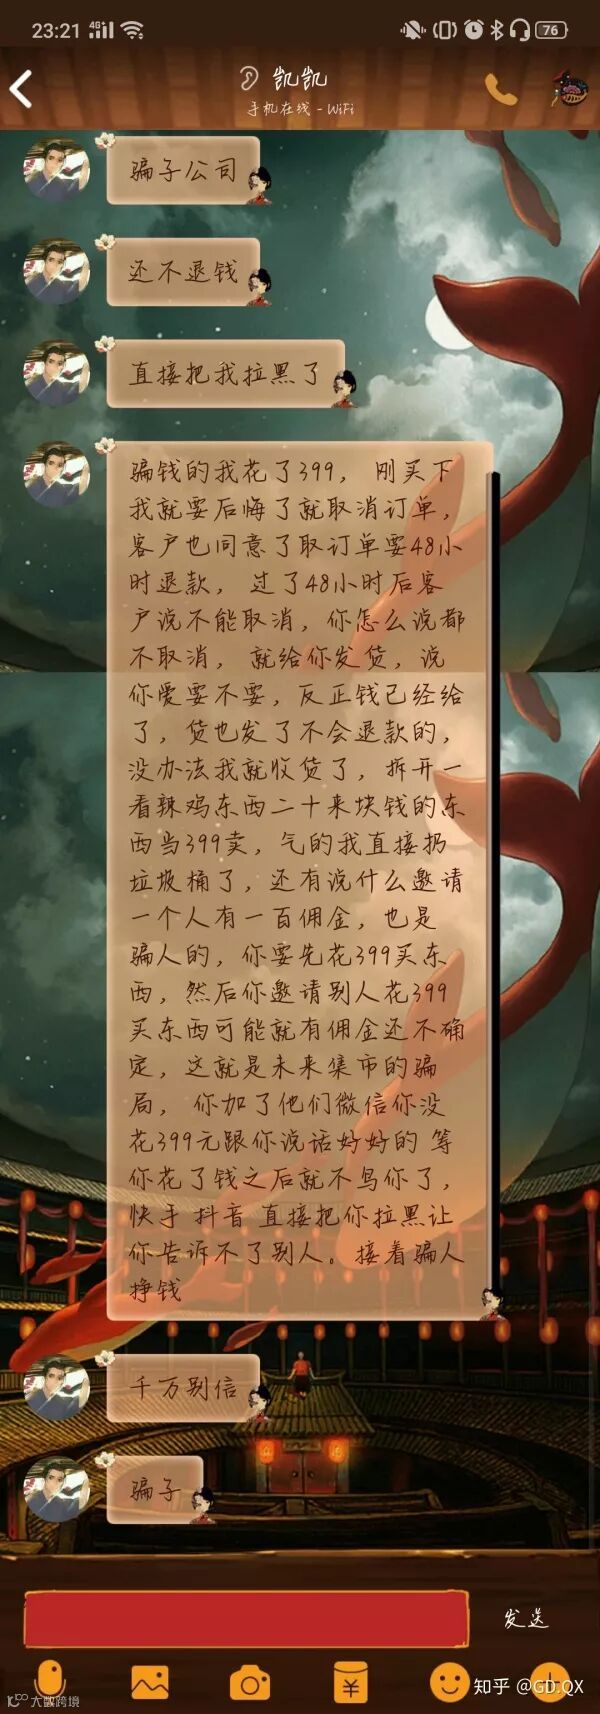 23:21
4G
76
凯凯
手机在线 - WiFi
骗子公司
还不退钱
直接把我拉黑了
骗钱的我花了399， 刚买下
我就要后悔了就取消订单，
客户也同意了取订单要48小
时退款， 过了48小时后客
户说不能取消，你怎么说都
不取消， 就给你发货，说
你爱要不要，反正钱已经给
了，货也发了不会退款的，
没办法我就收货了，拆开一
看辣鸡东西二十来块钱的东
西当399卖，气的我直接扔
垃圾桶了，还有说什么邀请
一个人有一百佣金，也是
骗人的，你要先花399买东
西，然后你邀请别人花399
买东西可能就有佣金还不确
定，这就是未来集市的骗
局， 你加了他们微信你没
花399元跟你说话好好的 等
你花了钱之后就不鸟你了，
快手 抖音 直接把你拉黑让
你告诉不了别人。接着骗人
挣钱
千万别信
骗子
发送
知乎 @GD.QX
大数跨境